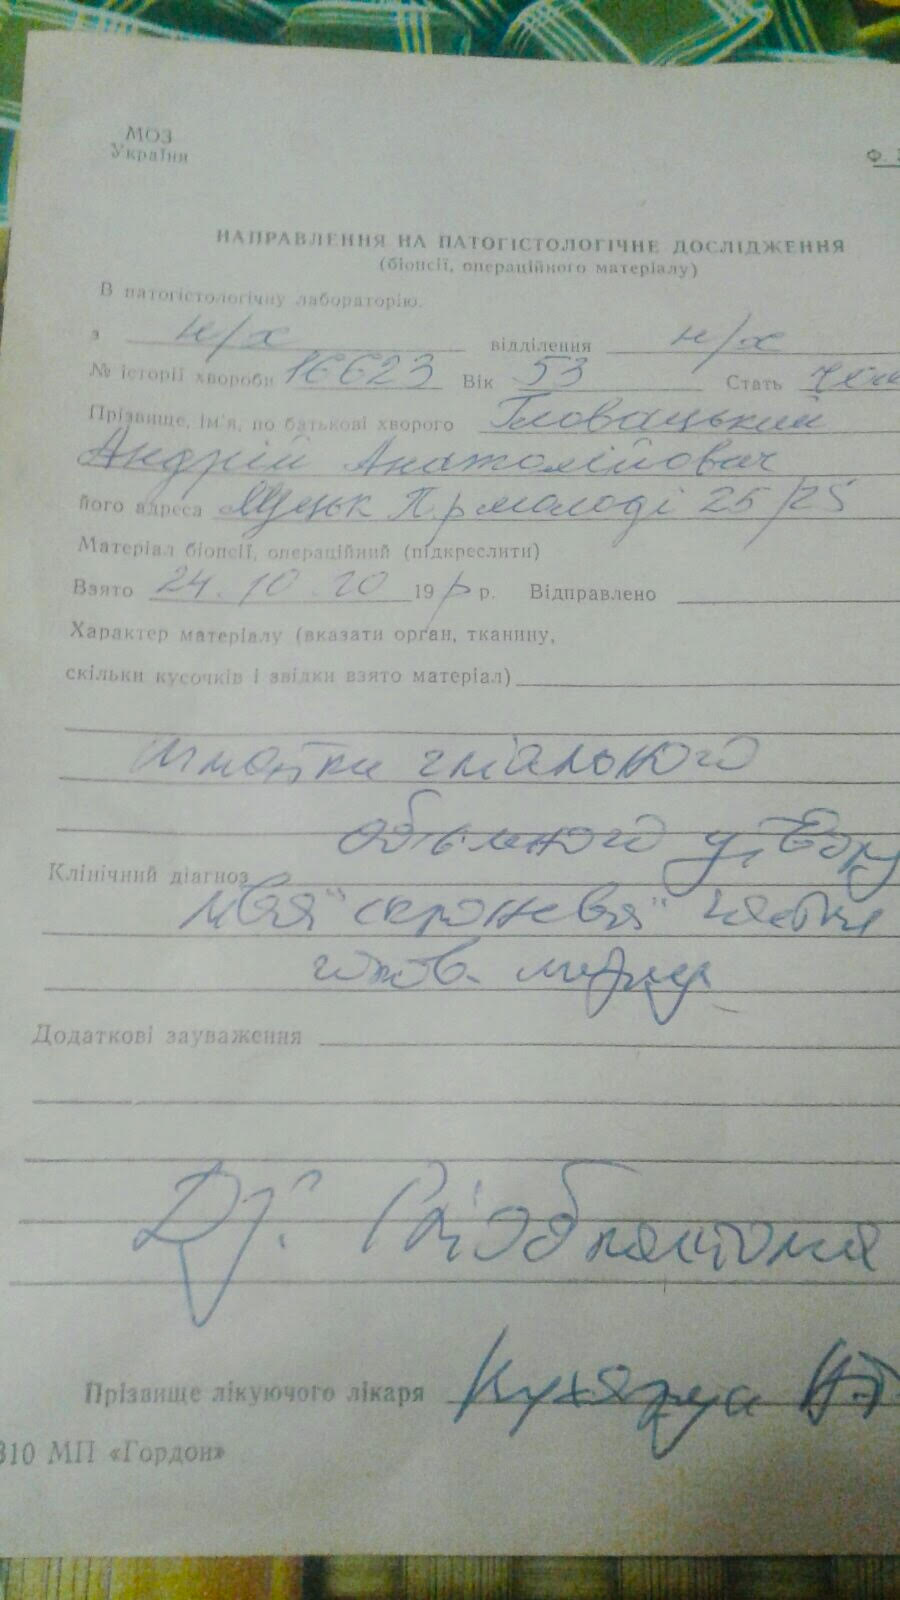 МОЗ
України
Ф.
НАПРАВЛЕННЯ НА ПАТОГІСТОЛОГІЧНЕ ДОСЛІДЖЕННЯ
(біопсії, операційного матеріалу)
В патогістологічну лабораторію.
з н/х відділення н/х
№ історії хвороби 16623 Вік 53 Стать
Прізвище, ім'я, по батькові хворого Гловацький
Андрій Анатолійовач
його адреса Луцьк Пр молоді 25/25
Матеріал біопсії, операційний (підкреслити)
Взято 24.10.20 19 р. Відправлено
Характер матеріалу (вказати орган, тканину,
скільки кусочків і звідки взято матеріал)
Шматки гліального
об'ємного
Клінічний діагноз
"скронева"
голов. мозку
Додаткові зауваження
Гліобластома
Прізвище лікуючого лікаря
310 МП «Гордон»